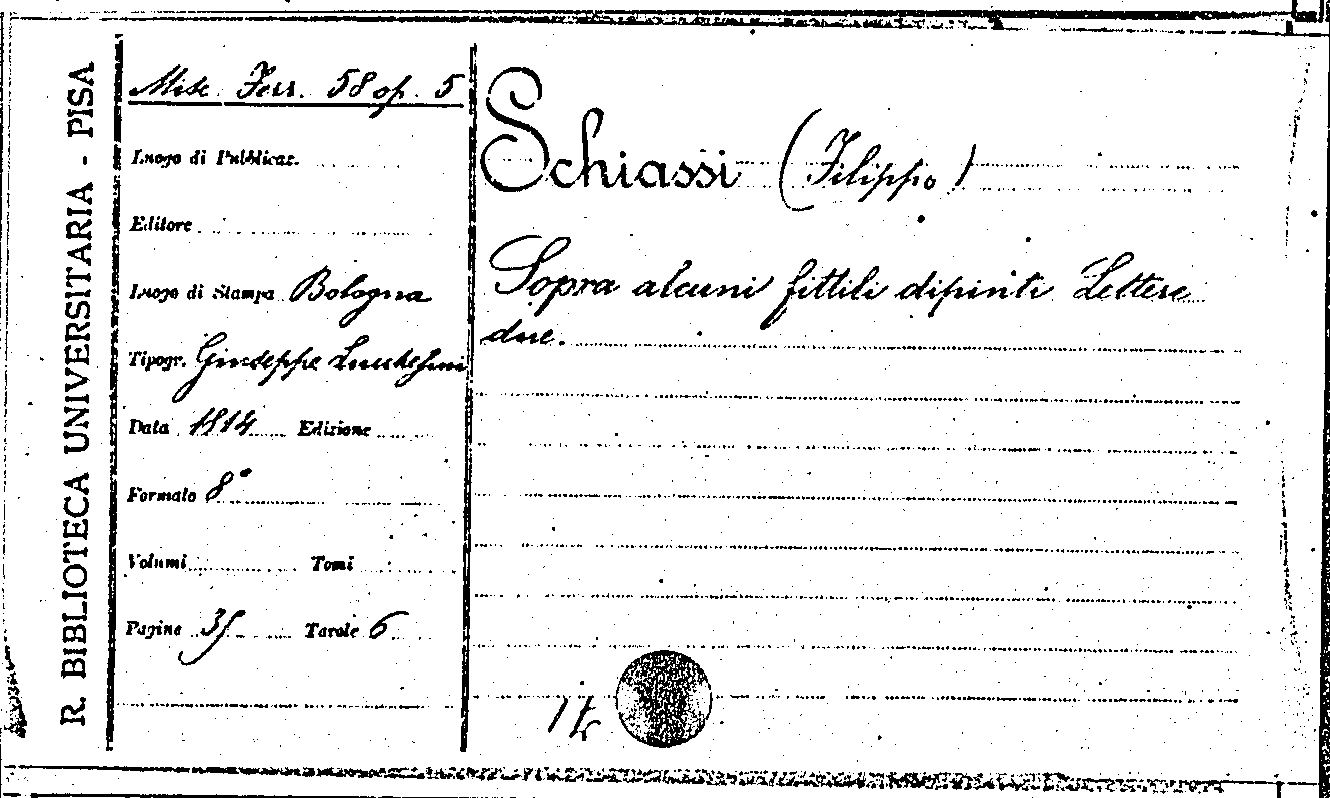 R. BIBLIOTECA UNIVERSITARIA - PISA
Misc. Ferr. 58 op. 5
Luogo di Pubblicaz.
Editore
Luogo di Stampa Bologna
Tipogr. Giuseppe Lucchesini
Data 1814 Edizione
Formato 8°
Volumi Tomi
Pagine 35 Tavole 6
Schiassi (Filippo)
Sopra alcuni fittili dipinti Lettere
due.